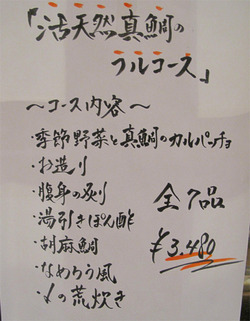 「活天然真鯛の
フルコース」
～コース内容～
・季節野菜と真鯛のカルパッチョ
・お造り
・腹身の炙り
・湯引きぽん酢
・胡麻鯛
・なめろう風
・〆の荒炊き
全7品
¥3.480